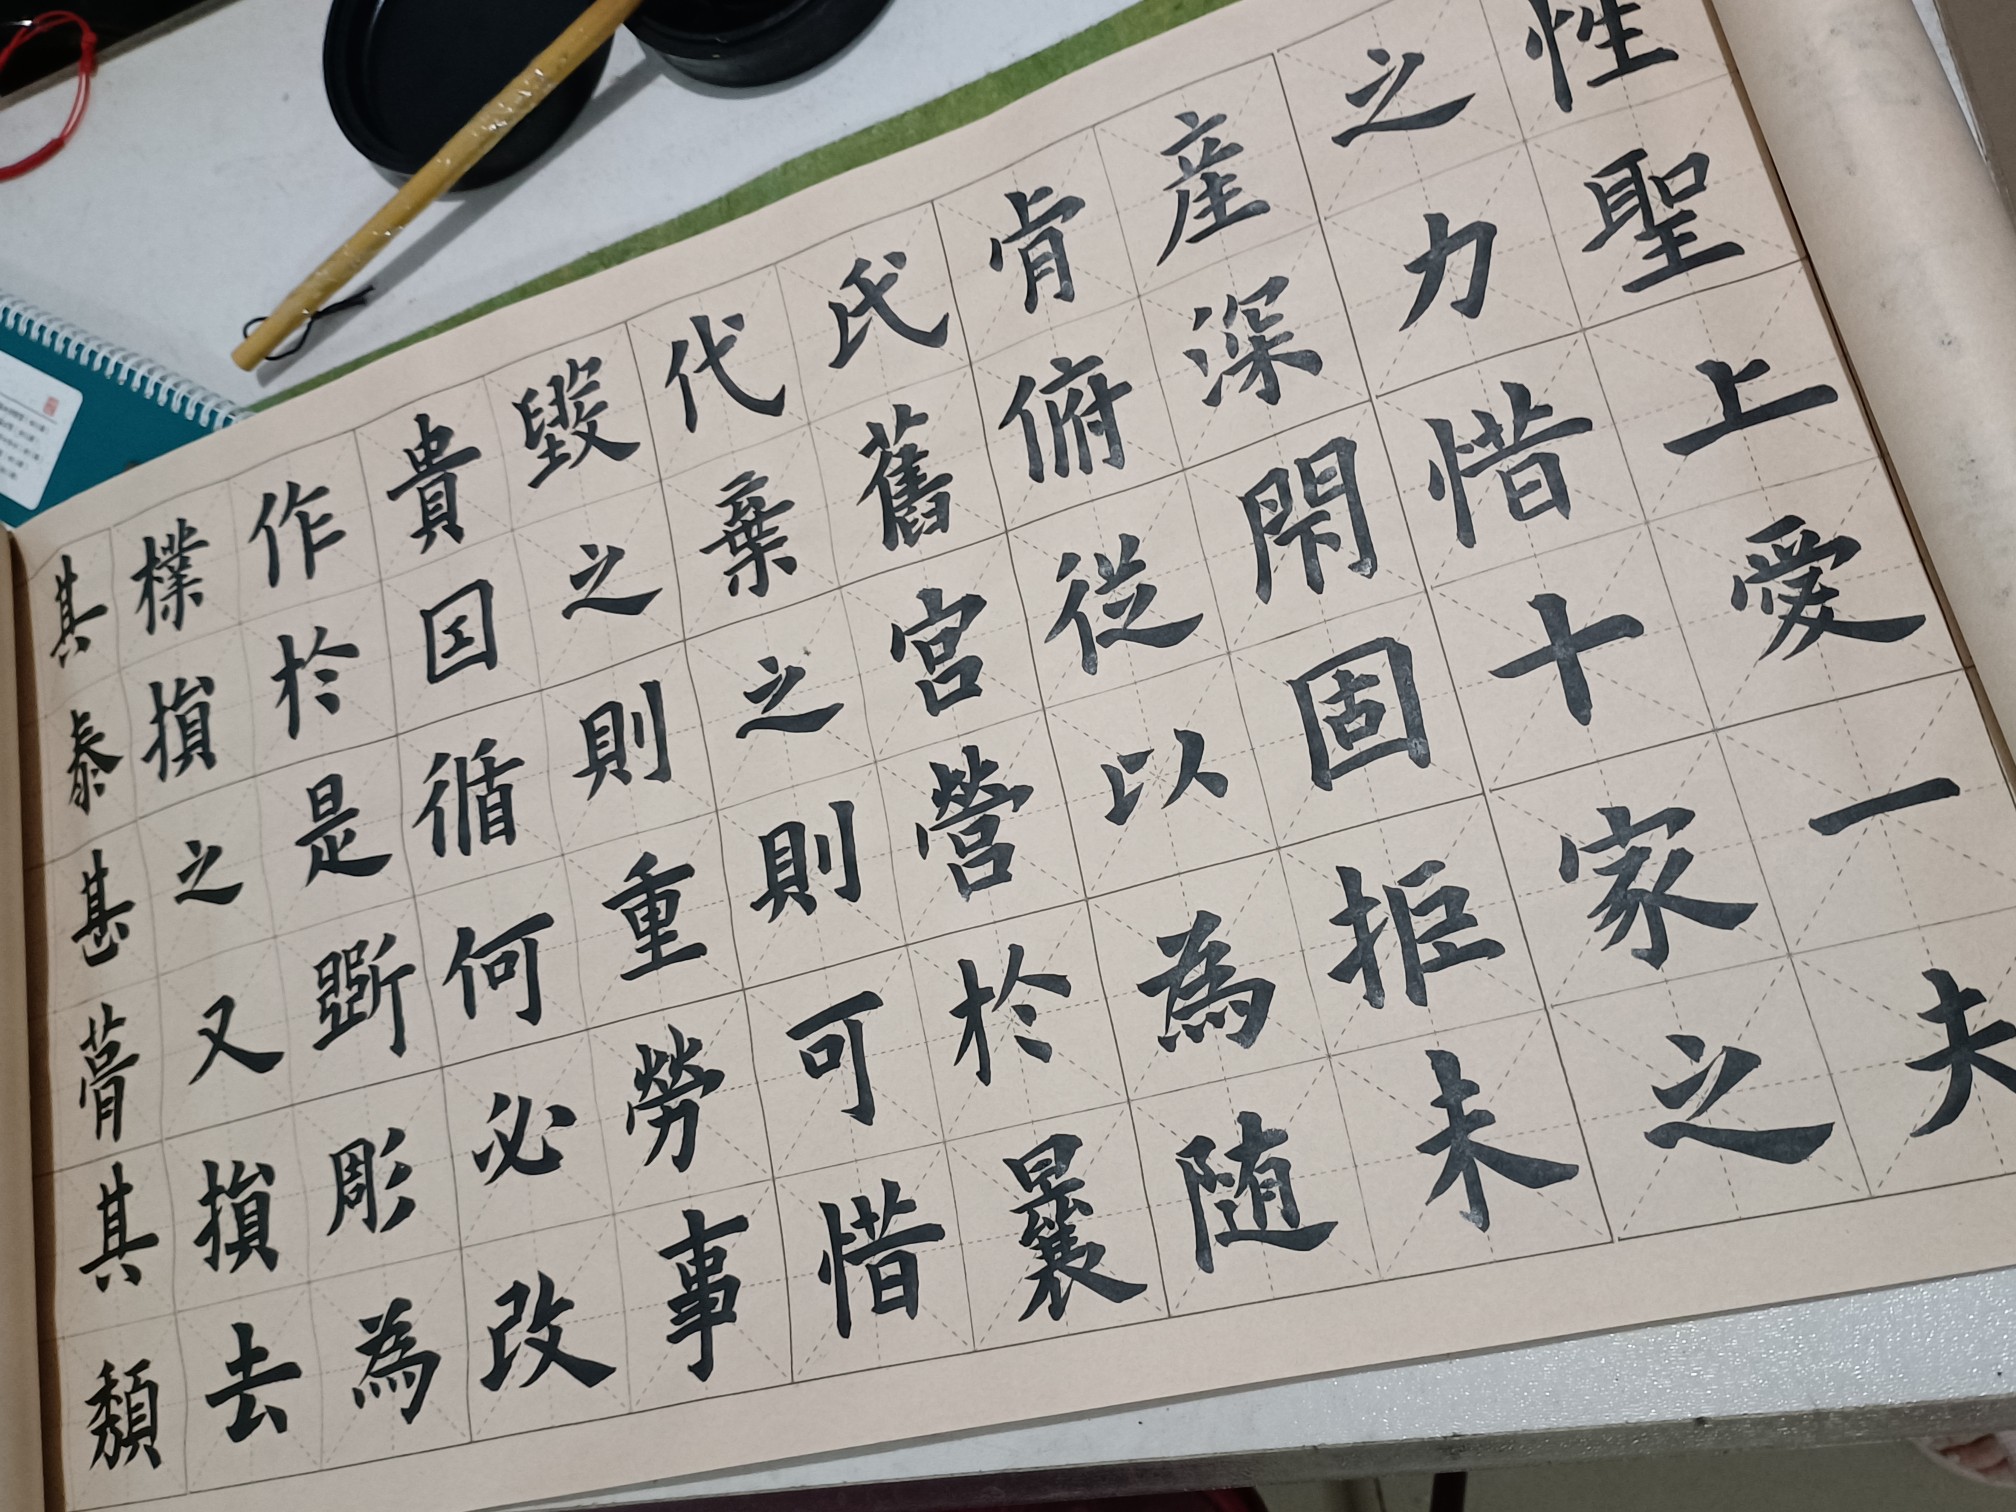 性聖上愛一夫
之力惜十家之
産深閇固拒未
肯俯從以為随
氏舊宮營於曩
代棄之則可惜
毀之則重勞事
貴因循何必改
作於是斲彫為
樸損之又損去
其泰甚葺其頹